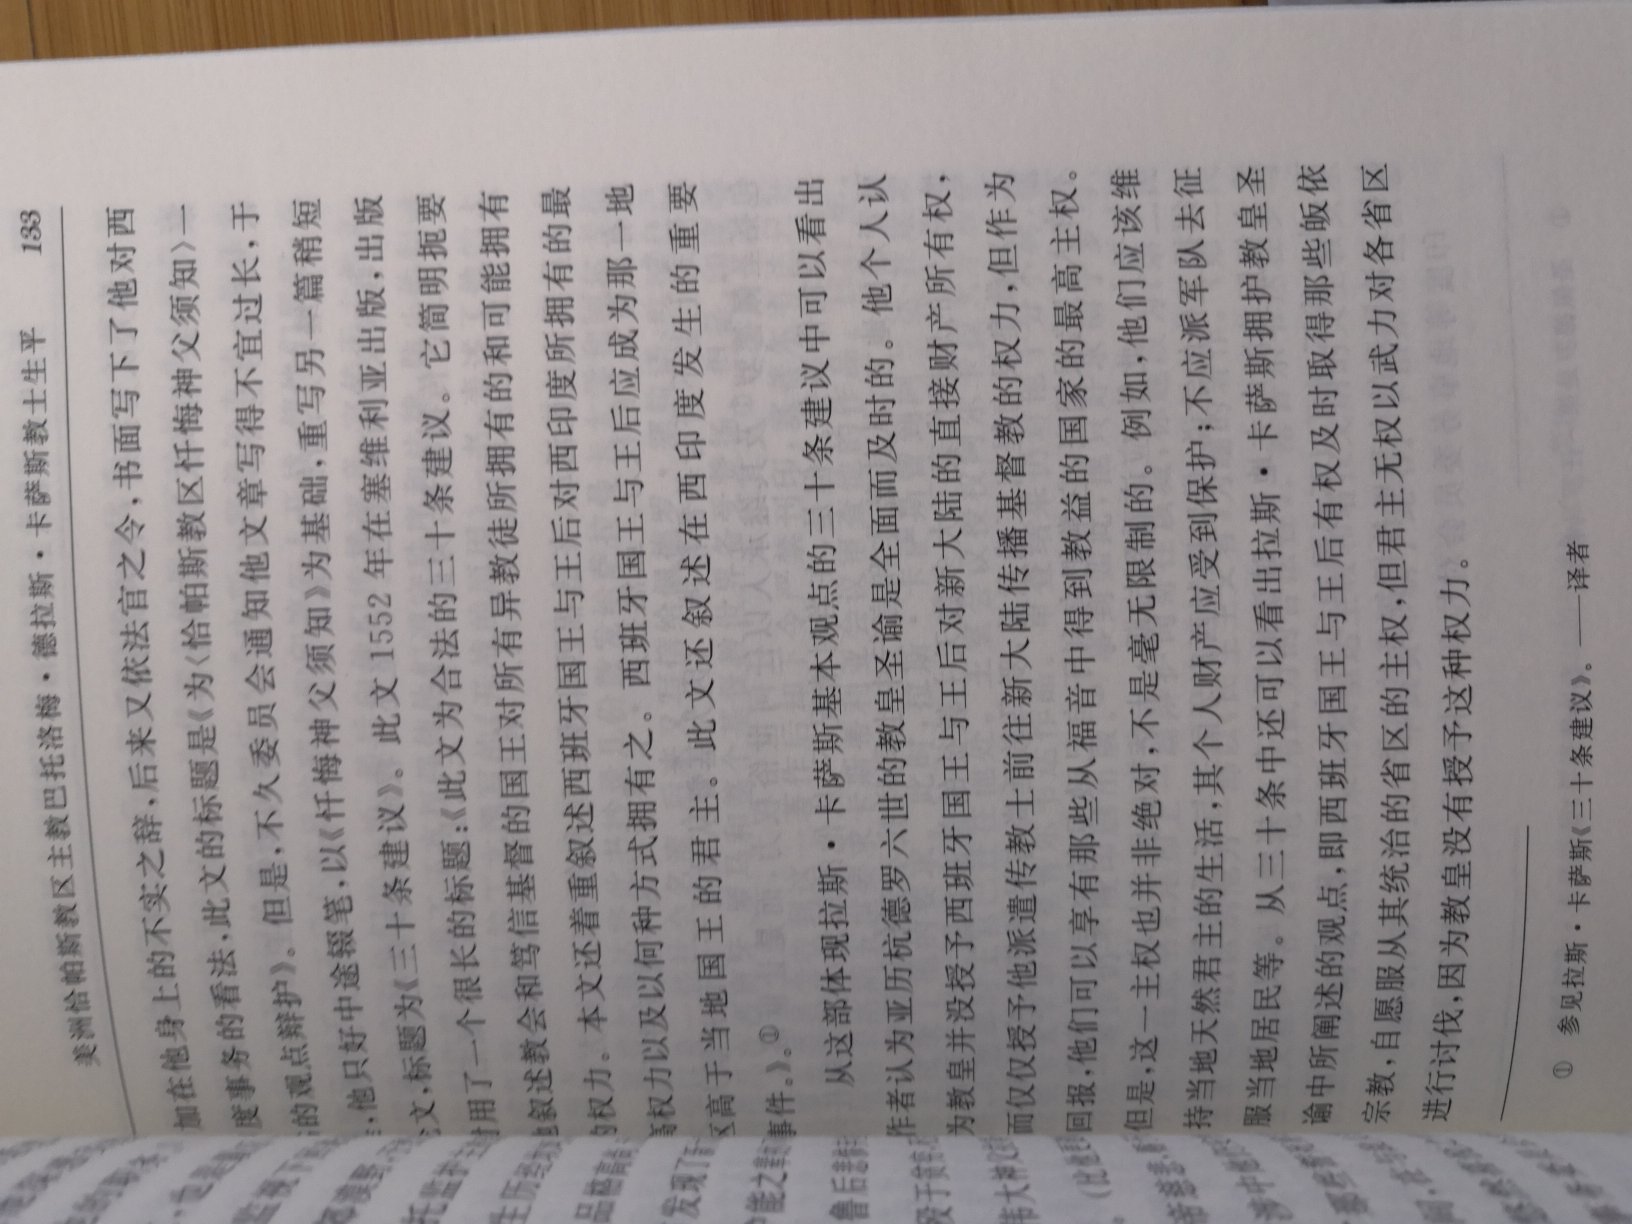 美洲恰帕斯教区主教巴托洛梅·德拉斯·卡萨斯教士生平 133
加在他身上的不实之辞,后来又依法官之令,书面写下了他对西
度事务的看法,此文的标题是《为〈恰帕斯教区忏悔神父须知〉一
的观点辩护》。但是,不久委员会通知他文章写得不宜过长,于
,他只好中途辍笔,以《忏悔神父须知》为基础,重写另一篇稍短
文,标题为《三十条建议》。此文1552年在塞维利亚出版,出版
用了一个很长的标题:《此文为合法的三十条建议。它简明扼要
叙述教会和笃信基督的国王对所有异教徒所拥有的和可能拥有
权力。本文还着重叙述西班牙国王与王后对西印度所拥有的最
高权力以及以何种方式拥有之。西班牙国王与王后应成为那一地
区高于当地国王的君主。此文还叙述在西印度发生的重要
事件。》。①
从这部体现拉斯·卡萨斯基本观点的三十条建议中可以看出
作者认为亚历杭德罗六世的教皇圣谕是全面而及时的。他个人认
为教皇并没授予西班牙国王与王后对新大陆的直接财产所有权,
而仅仅授予他派遣传教士前往新大陆传播基督教的权力,但作为
回报,他们可以享有那些从福音中得到教益的国家的最高主权。
但是,这一主权也并非绝对,不是毫无限制的。例如,他们应该维
持当地天然君主的生活,其个人财产应受到保护;不应派军队去征
服当地居民等。从三十条中还可以看出拉斯·卡萨斯拥护教皇圣
谕中所阐述的观点,即西班牙国王与王后有权及时取得那些皈依
宗教,自愿服从其统治的省区的主权,但君主无权以武力对各省区
进行讨伐,因为教皇没有授予这种权力。
① 参见拉斯·卡萨斯《三十条建议》。——译者